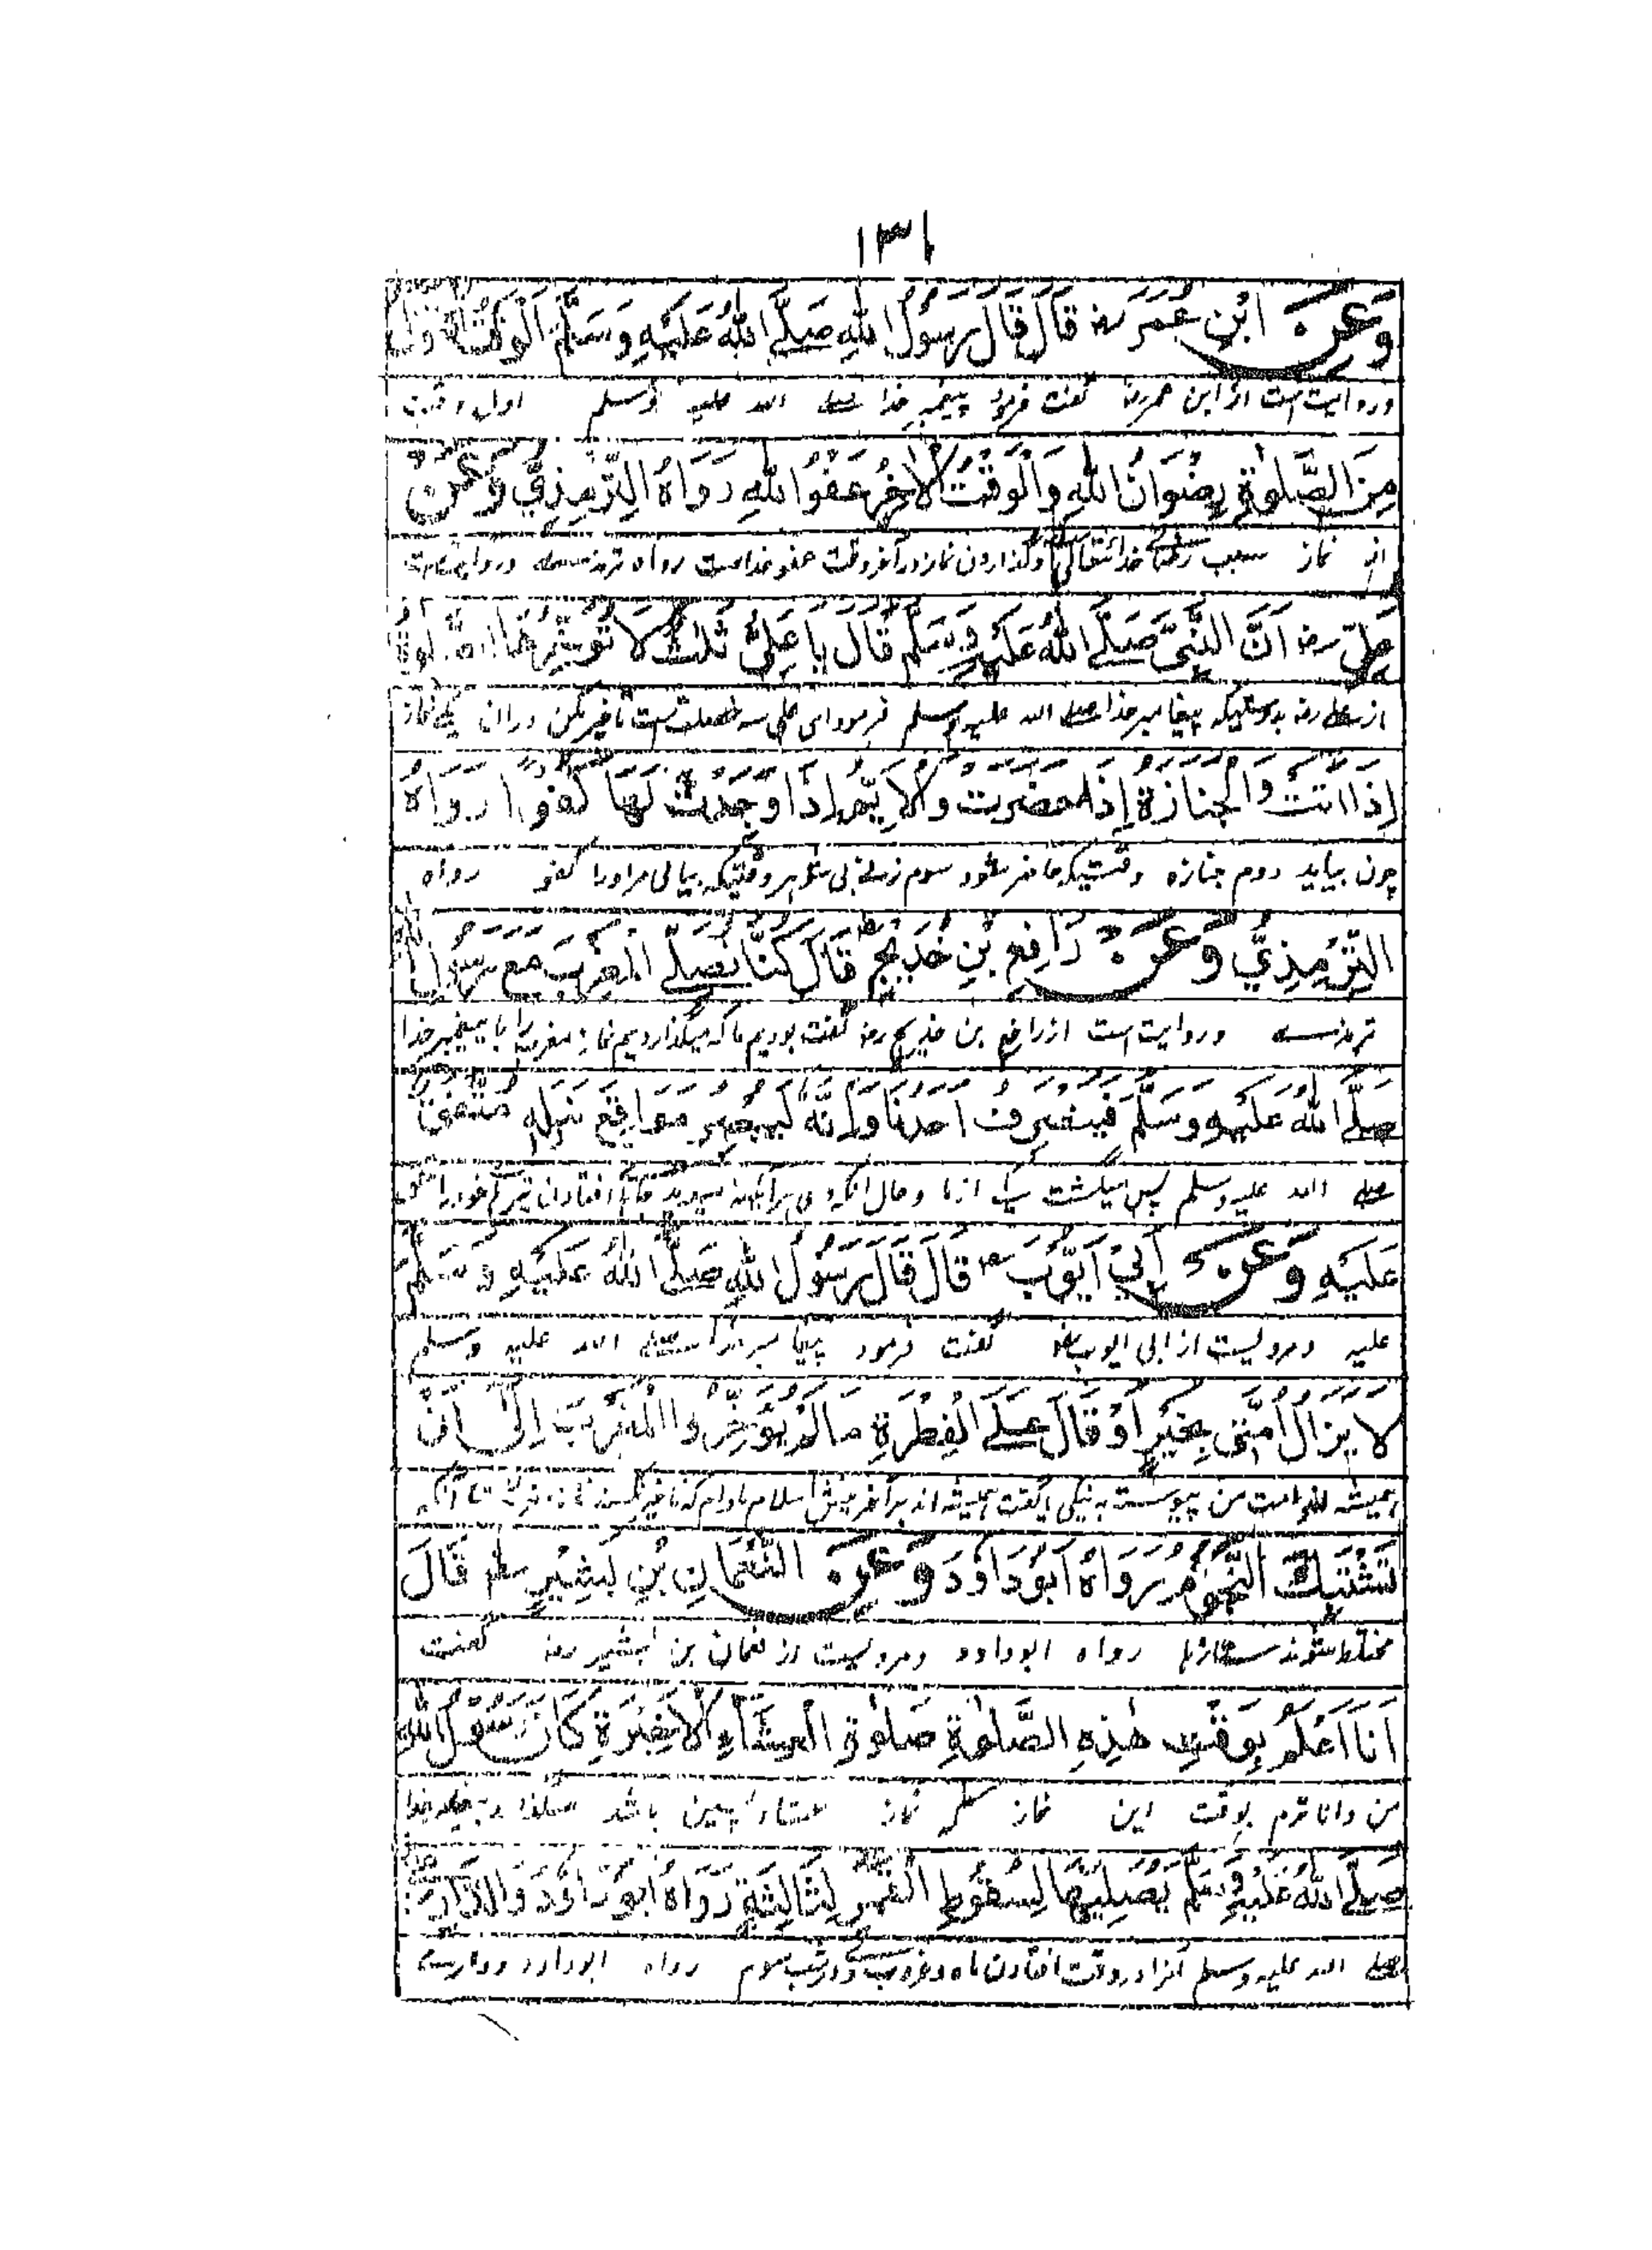 ١٣١
وَعَنْ ابْنِ عُمَرَ رض قَالَ قَالَ رَسُوْلُ اللهِ صَلَّے اللهُ عَلَيْهِ وَسَلَّمَ اَلْوَقْتُ الْاَوَّلُ
وروایت ست از ابن عمر رض گفت فرمود پیغمبر خدا صلے الله علیه وسلم اول وقت
مِنَ الصَّلٰوةِ رِضْوَانُ اللهِ وَالْوَقْتُ الْاٰخِرُ عَفْوُ اللهِ رَوَاهُ التِّرْمِذِيُّ وَعَنْ
از نماز سبب خدا تعالی و گذاردن نماز در آخر وقت عفو خداست رواه ترمذے وروایت ست
عَلِيٍّ رض اَنَّ النَّبِيَّ صَلَّے اللهُ عَلَيْهِ وَسَلَّمَ قَالَ يَا عَلِيُّ ثَلٰثٌ لَا تُؤَخِّرْهَا اَلصَّلٰوةُ
از علے رض بدرستیکه پیغامبر خدا صلے الله علیه وسلم فرمود ای علی سه خصلت ست تاخیر مکن دران یکے نماز
اِذَا اَتَتْ وَالْجَنَازَةُ اِذَا حَضَرَتْ وَالْاَيِّمُ اِذَا وَجَدْتَ لَهَا كُفُوًا رَوَاهُ
چون بیاید دوم جنازه وقتیکه حاضر شود سوم زنے بی شوهر وقتیکه بیابی مر اورا کفو رواه
التِّرْمِذِيُّ وَعَنْ رَافِعِ بْنِ خَدِيْجٍ قَالَ كُنَّا نُصَلِّے الْمَغْرِبَ مَعَ رَسُوْلِ اللهِ
ترمذے وروایت ست از رافع بن خدیج رض گفت بودیم ما که میگذاردیم نماز مغرب را با پیغمبر خدا
صَلَّے اللهُ عَلَيْهِ وَسَلَّمَ فَيَنْصَرِفُ اَحَدُنَا وَاِنَّهُ لَيُبْصِرُ مَوَاقِعَ نَبْلِهٖ مُتَّفَقٌ
صلے الله علیه وسلم پس میگشت یکے از ما و حال آنکه وی افتادن تیر خود را
عَلَيْهِ وَعَنْ اَبِيْ اَيُّوْبَ رض قَالَ قَالَ رَسُوْلُ اللهِ صَلَّے اللهُ عَلَيْهِ وَسَلَّمَ
علیه ومرویست از ابی ایوب رض گفت فرمود پیامبر خدا صلے الله علیه وسلم
لَا يَزَالُ اُمَّتِيْ بِخَيْرٍ اَوْ قَالَ عَلَے الْفِطْرَةِ مَا لَمْ يُؤَخِّرُوا الْمَغْرِبَ اِلٰى اَنْ
همیشه امت من پیوسته به نیکی یا گفت همیشه اند بر اسلام مادام که تاخیر نکنند تا آنکه
تَشْتَبِكَ النُّجُوْمُ رَوَاهُ اَبُوْ دَاوٗدَ وَعَنِ النُّعْمَانِ بْنِ بَشِيْرٍ رض قَالَ
مختلط شوند ستارها رواه ابوداود ومرویست از نعمان بن بشیر رض گفت
اَنَا اَعْلَمُ بِوَقْتِ هٰذِهِ الصَّلٰوةِ صَلٰوةِ الْعِشَآءِ الْاٰخِرَةِ كَانَ رَسُوْلُ اللهِ
من داناترم بوقت این نماز نماز عشاء پسین باشد خدا
صَلَّے اللهُ عَلَيْهِ وَسَلَّمَ يُصَلِّيْهَا لِسُقُوْطِ الْقَمَرِ لِثَالِثَةٍ رَوَاهُ اَبُوْ دَاوٗدَ وَالدَّارِمِيُّ
صلے الله علیه وسلم آنرا در وقت افتادن ماه و غروب در شب سوم رواه ابوداود ودارمے